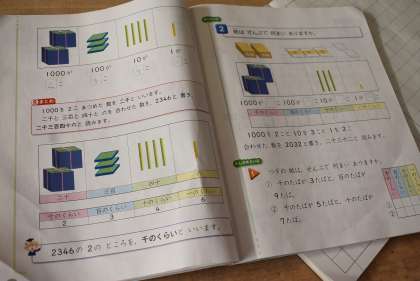 1000が 100が 10が 1が
2こ 3こ 4こ 6こ
まとめ
1000を 2こ あつめた 数を 二千と いいます。
二千と 三百と 四十と 六を 合わせた 数を、2346と 書き、
二千三百四十六と 読みます。
二千 三百 四十
千のくらい 百のくらい 十のくらい 一のくらい
2 3 4 6
2346の 2の ところを、千のくらいと いいます。
2 紙は ぜんぶで 何まい ありますか。
1000が 100が 10が 1が
千のくらい 百のくらい 十のくらい 一のくらい
1000を 2こと 10を 3こと 1を 2こ
合わせた 数を 2032と 書き、二千三十二と 読みます。
つぎの 紙は、ぜんぶで 何まい ありますか。
① 千のたばが 3たばと、百のたばが
9たば。
② 千のたばが 5たばと、十のたばが
7たば。